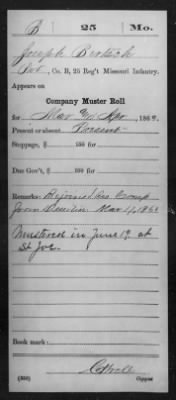 B 25 Mo.
Joseph
Pvt, Co. B, 25 Reg't Missouri Infantry.
Appears on
Company Muster Roll
for Mar & Apr, 1862.
Present or absent Present
Stoppage, $ 100 for
Due Gov't, $ 100 for
Remarks: Rejoined his Comp
from Mar 1, 1862
Mustered in June 19 at
St Joe
Book mark:
(358) Copyist.